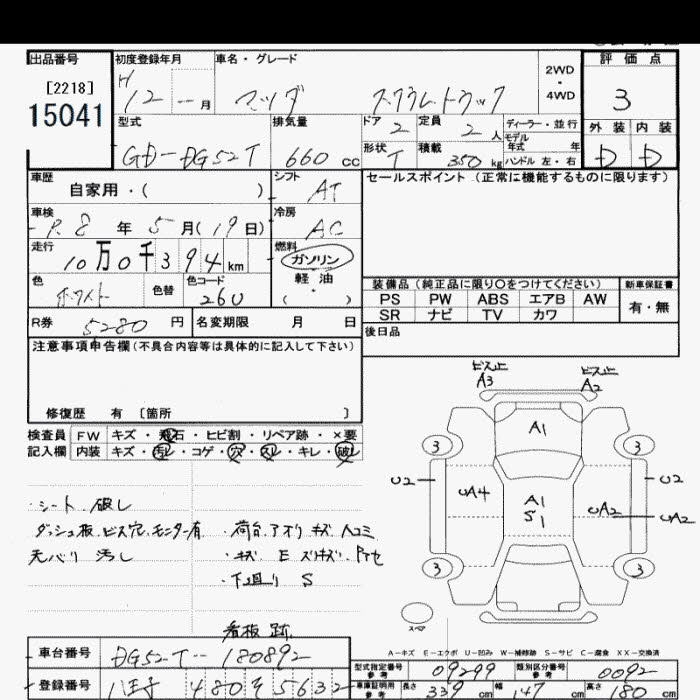 出品番号 初度登録年月 車名・グレード 2WD・4WD 評価点
[2218]
15041
H 12 -- 月 マツダ スクラムトラック 3
型式 排気量 ドア 2 定員 2 人 ディーラー・並行 外装 内装
モデル年式 年
GD-DG52T 660 cc 形状 T 積載 350 kg ハンドル 左・右 D D
車歴 シフト セールスポイント (正常に機能するものに限ります)
自家用・( ) AT
車検 冷房
R. 8 年 5 月(19日) AC
走行 燃料
10万0千394 km ガソリン
色 色替 色コード 軽油
ホワイト 26U ( )
装備品 (純正品に限り○をつけてください) 新車保証書
PS PW ABS エアB AW 有・無
SR ナビ TV カワ
R券 5280 円 名変期限 月 日
後日品
注意事項申告欄(不具合内容等は具体的に記入して下さい)
修復歴 有 [箇所 ]
検査員 FW キズ・飛石・ヒビ割・リペア跡・×要
記入欄 内装 キズ・汚レ・コゲ・穴・スレ・キレ・破レ
ビス止 A3 ビス止 A2
A1
3 3
U2 UA4 A1 S1 UA2 U2 UA2
3 3
スペア
・シート 破レ
ダッシュ板、ビス穴、モニター有
天バリ 汚し
・荷台、アオリ キズ 人コミ
・キズ E
・下廻り S
看板 跡
A-キズ E-エクボ U-凹み W-補修跡 S-サビ C-腐食 XX-交換済
車台番号 DG52T-180892
型式指定番号 参考 09299 類別区分番号 参考 0092
登録番号 八王子 480 そ 5632
車庫証明用 参考 長さ 339 cm 幅 147 cm 高さ 180 cm